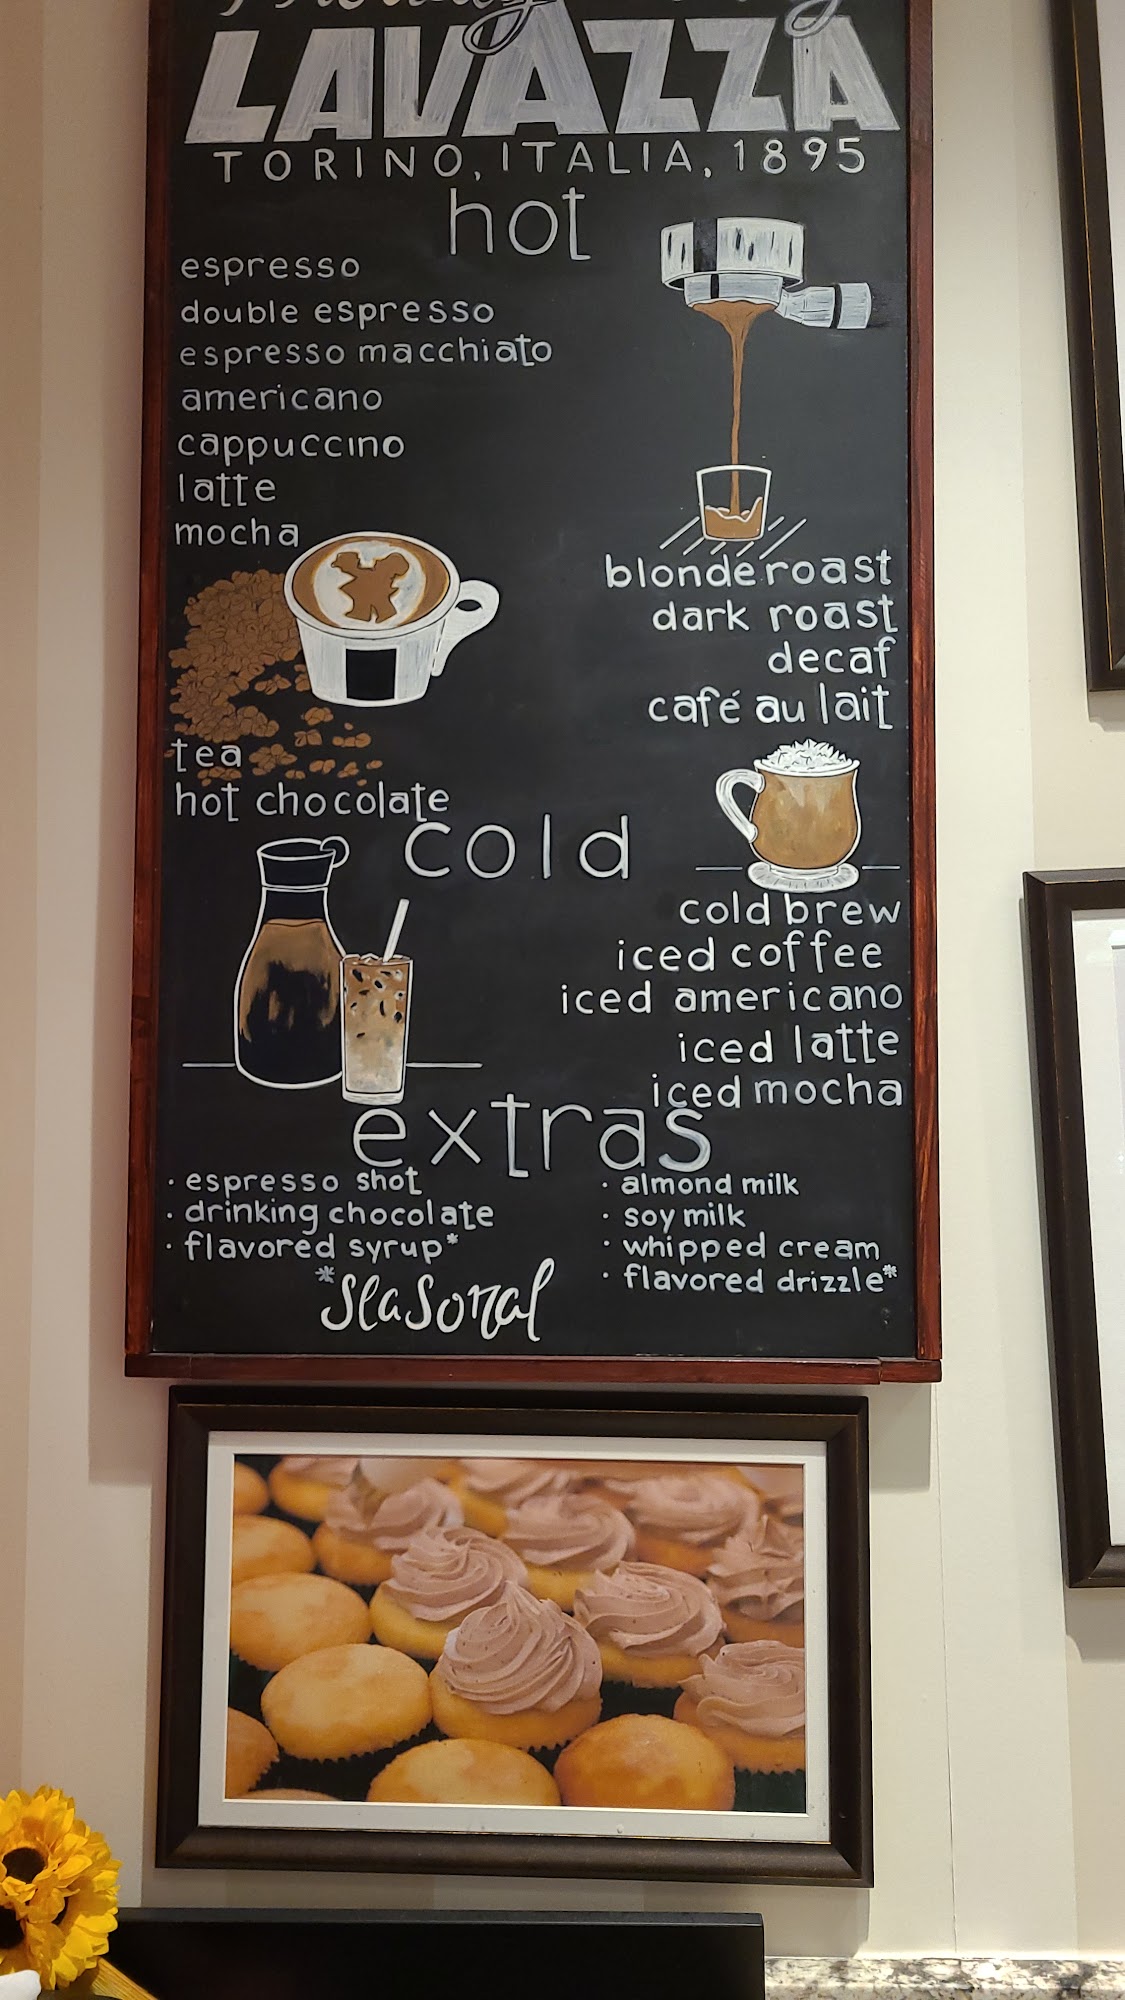 LAVAZZA
TORINO, ITALIA, 1895
hot
espresso
double espresso
espresso macchiato
americano
cappuccino
latte
mocha
blonde roast
dark roast
decaf
café au lait
tea
hot chocolate
cold
cold brew
iced coffee
iced americano
iced latte
iced mocha
extras
· espresso shot
· drinking chocolate
· flavored syrup*
· almond milk
· soy milk
· whipped cream
· flavored drizzle*
*seasonal